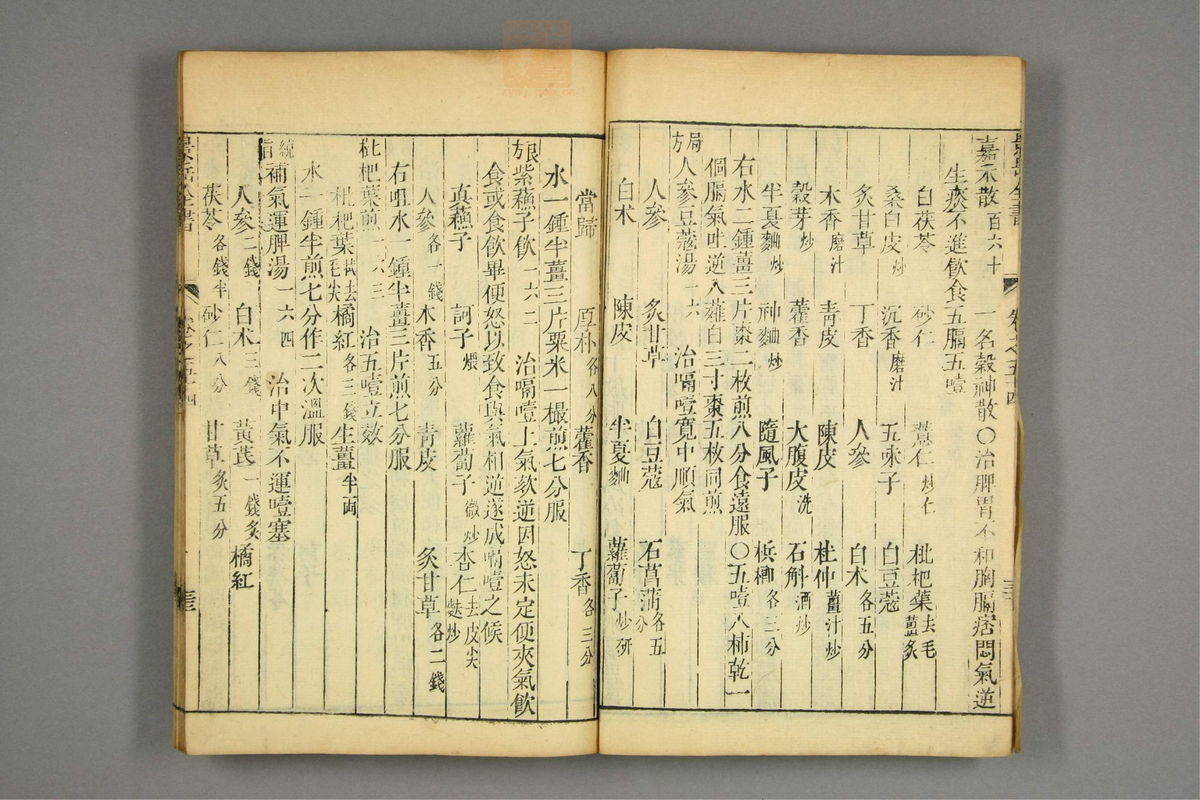 嘉禾散 百六十 一名穀神散〇治脾胃不和胸膈痞悶氣逆
生痰不進飲食五膈五噎
白茯苓 砂仁 薏仁炒 枇杷葉去毛薑炙
桑白皮炒 沉香磨汁 五味子 白豆蔻
炙甘草 丁香 人參 白朮各五分
木香磨汁 青皮 陳皮 杜仲薑汁炒
穀芽炒 藿香 大腹皮洗 石斛酒炒
半夏麯炒 神麯炒 隨風子 梹榔各三分
右水二鍾薑三片棗二枚煎八分食遠服〇五噎入柿乾一
個膈氣吐逆入薤白三寸棗五枚同煎
局方人參豆蔻湯 一六 治膈噎寬中順氣
人參 炙甘草 白豆蔻 石菖蒲各五分
白朮 陳皮 半夏麯 蘿蔔子炒研
當歸 厚朴各八分 藿香 丁香各三分
水一鍾半薑三片粟米一撮煎七分服
良方紫蘇子飲 一六二 治嗝噎上氣欬逆因怒未定便夾氣飲
食或食飲畢便怒以致食與氣相逆遂成嗝噎之候
真蘇子 訶子煨 蘿蔔子微炒 杏仁去皮尖麩炒
人參各一錢 木香五分 青皮 炙甘草各二錢
右咀水一鍾半薑三片煎七分服
枇杷葉煎 一六三 治五噎立效
枇杷葉拭去毛尖 橘紅各三錢 生薑半両
水一鍾半煎七分作二次溫服
統旨補氣運脾湯 一六四 治中氣不運噎塞
人參二錢 白朮三錢 黃芪一錢炙 橘紅
茯苓各錢半 砂仁八分 甘草炙五分